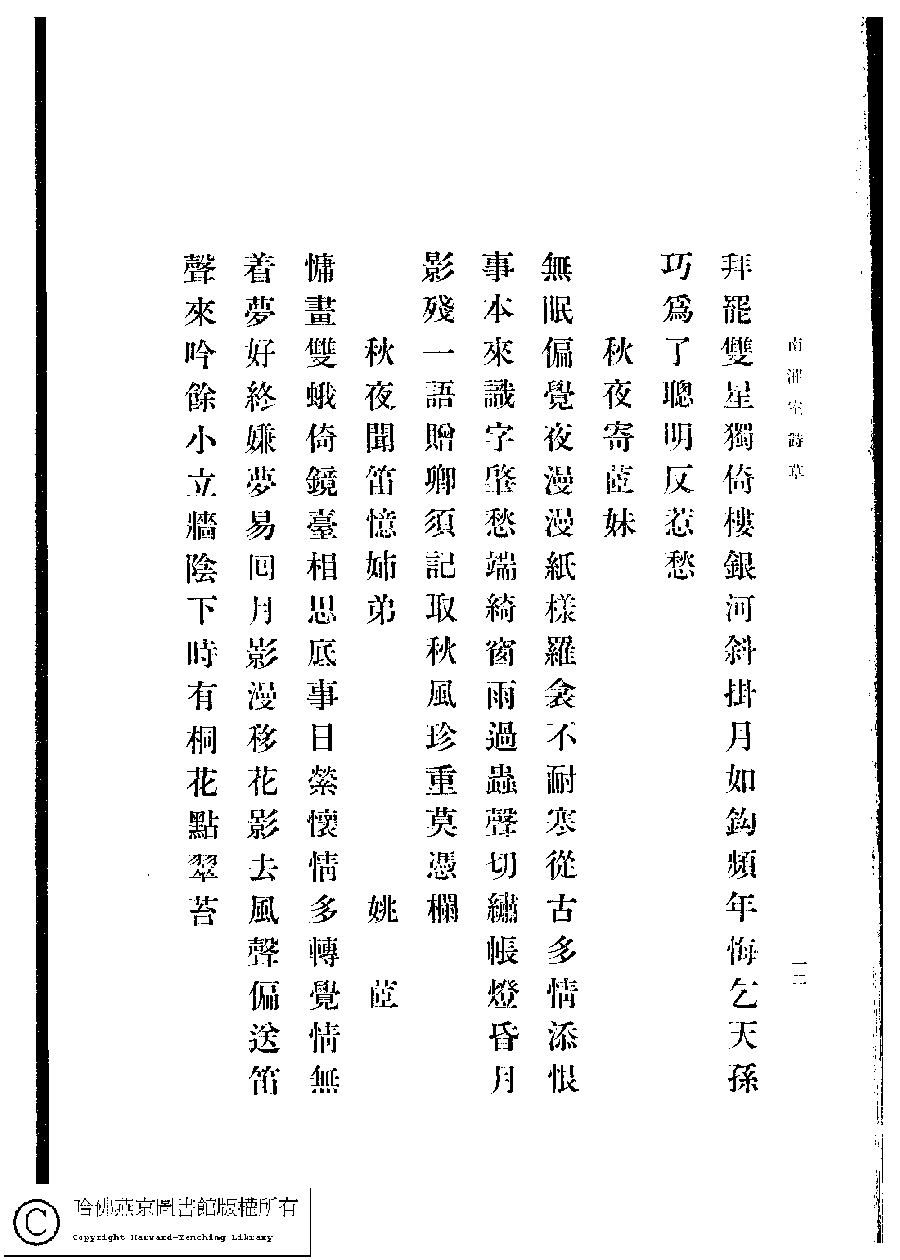 南湘室詩草
一二
拜罷雙星獨倚樓銀河斜掛月如鈎頻年悔乞天孫
巧爲了聰明反惹愁
秋夜寄茝妹
無眠偏覺夜漫漫紙樣羅衾不耐寒從古多情添恨
事本來識字肇愁端綺窗雨過蟲聲切繡帳燈昏月
影殘一語贈卿須記取秋風珍重莫憑欄
秋夜聞笛憶姊弟 姚茝
慵畫雙蛾倚鏡臺相思底事日縈懷情多轉覺情無
着夢好終嫌夢易回月影漫移花影去風聲偏送笛
聲來吟餘小立牆陰下時有桐花點翠苔
哈佛燕京圖書館版權所有
Copyright Harvard-Yenching Library